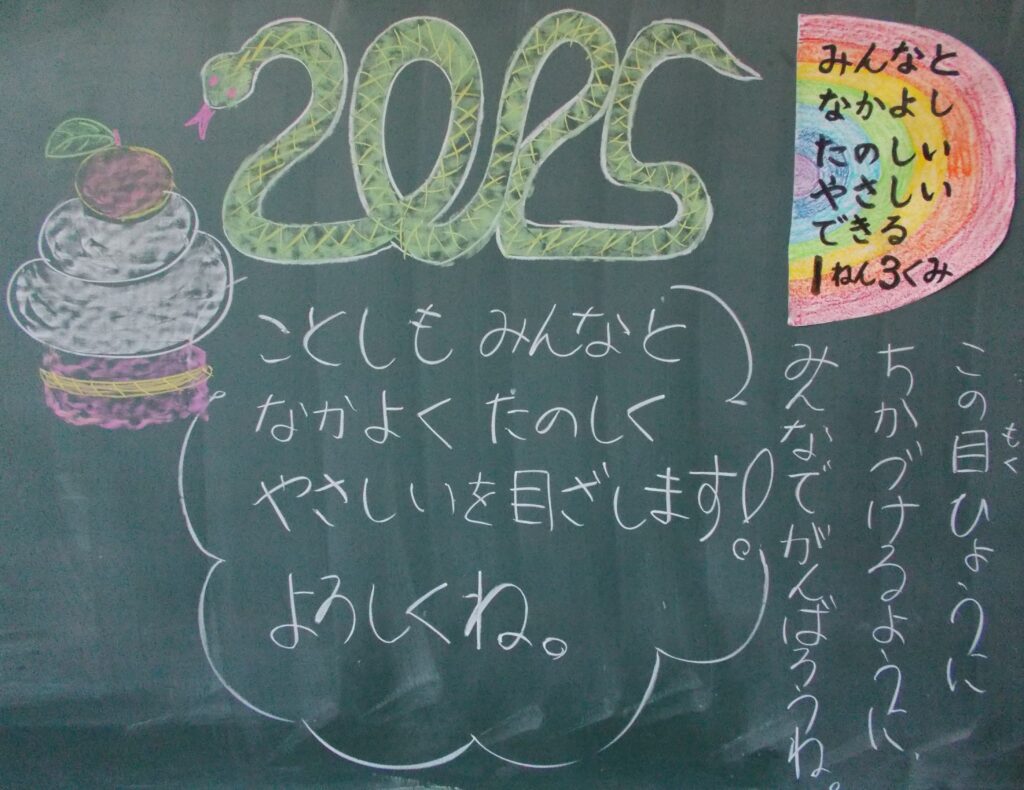 2025
みんなと
なかよし
たのしい
やさしい
できる
1ねん3くみ
ことしも みんなと
なかよく たのしく
やさしいを目ざします!
よろしくね。
この目ひょうに
もく
ちかづけるように、
みんなでがんばろうね。